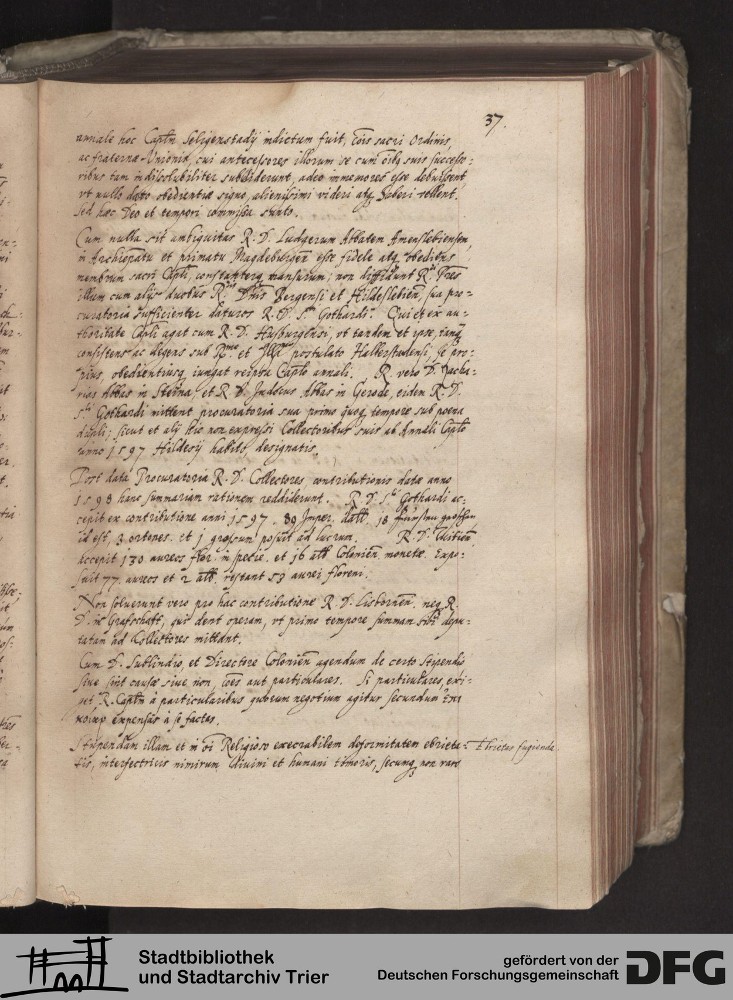 37.
annale hoc Capłm Seligenstadij indictum fuit, cõis sacri Ordinis,
ac fraternæ Unionis, cui antecessores illorum se cum õibq suis successo-
ribus tam indissolubiliter subdiderunt, adeo immemores esse debuissent
vt nullo dato obedientiæ signo, alienissimi videri atq haberi vellent.
Sed hæc Deo et tempori commissa sunto.
Cum nulla sit ambiguitas R. D. Ludgerum Abbatem Amenslebiensem
in Archiepatu et primatu Magdeburgen esse fidele atq obediens
membrum sacri Capłi, constanterq mansurum; non diffidunt R. Pres
illum cum alijs duobus R. Dnis Bergensi et Hildeslebien, sua pro-
curatoria sufficienter daturos R. D. S. Gothardi. Qui et ex au-
thoritate Capłi agat cum R. D. Husburgensi, vt tandem et ipse, tanq
consistens ac degens sub Rmo et Illmo postulato Halberstadensi, se pro-
pius, obedientiusq iungat reipsa Capło annali. R. vero D. Zacha-
rias Abbas in Steina, et R. D. Judocus Abbas in Gerode, eidem R. D.
S. Gothardi mittent procuratoria sua primo quoq tempore sub poena
dupli; sicut et alij hic non expressi Collectoribus suis ab Annali Capło
anno 1597 Hildesij habito, designatis.
Post data Procuratoria R. D. Collectores contributionis datæ anno
1598 hanc summariam rationem reddiderunt. R. D. S. Gothardi ac-
cepit ex contributione anni 1597. 89 Imper. dall. 18 fürsten groschen
id est, 3 ortones. et 1 grossum posuit ad lucrum. R. D. Tuitien
accepit 130 aureos flor. in specie. et 16 alb Colonien monetæ. Expo-
suit 77. aureos et 2 alb. restant 53 aurei floreni.
Non soluerunt vero pro hac contributione R. D. Lisbornen. neq R.
D. in Grafschafft, qui dent operam, vt primo tempore summam sibi depu-
tatam ad Collectores mittant.
Cum D. Sublindio, et Directore Colonien agendum de certo stipendio
siue sint causæ siue non, cões aut particulares. Si particulares, exi-
net R. Capłm à particularibus quorum negotium agitur secundum
expensas à se factas.
Stupendam illam et in õi Religioso execrabilem deformitatem ebrieta-
tis, interfectricis nimirum diuini et humani timoris, secumq non raro
Ebrietas fugienda.
Stadtbibliothek
und Stadtarchiv Trier
gefördert von der
Deutschen Forschungsgemeinschaft
DFG